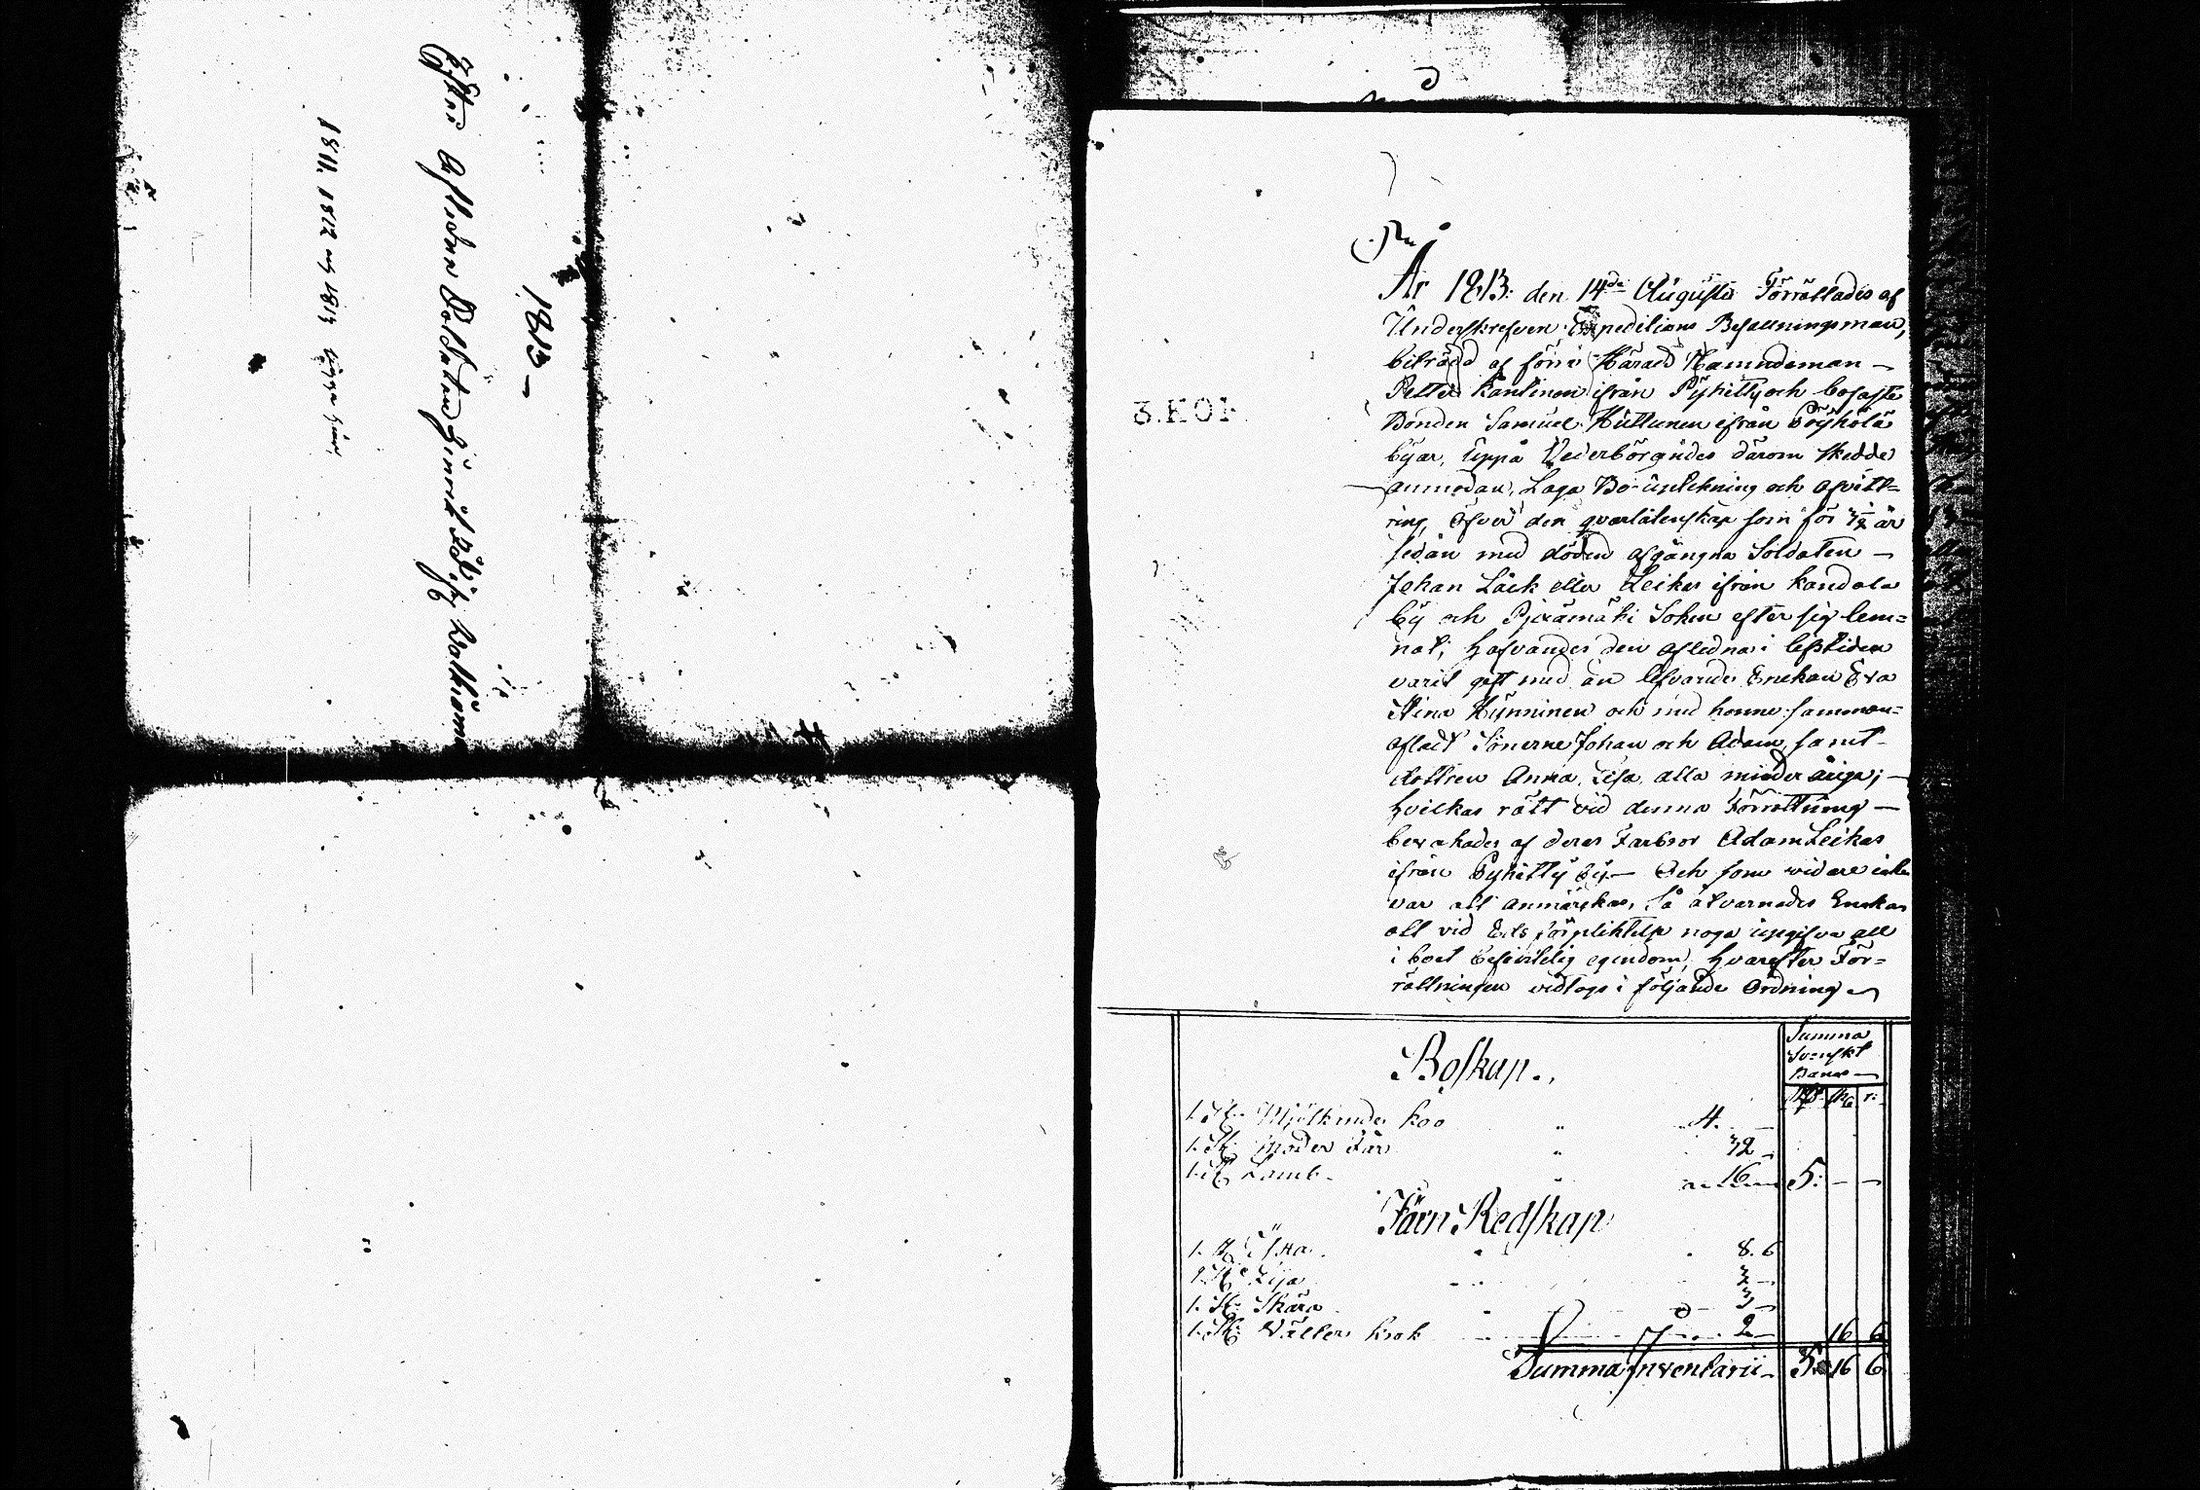 1813 –
Efter Aflidne Soldaten Hinrik
1811. 1812 och 1813
3.KOP
År 1813. den 14de Augusti Förrättades af
Underskrefven Expeditions Befallningsman,
biträdd af förre Härads Nämndeman –
Petter Kantinen ifrån Pyhitty och bofaste
Bonden Samuel Huttunen ifrån Pöyhölä
byar, uppå Vederbörandes därom skedde
anmodan, Laga Bo-uptekning och afvitt=
ring, öfver den qvarlåtenskap som för 1/2 år
sedan med döden afgångna Soldaten –
Johan Läck eller Leikas ifrån Kandala
by och Pjexämäki Sokn efter sig lem=
nat; hafvandes den aflidna i lifstiden
varit gift med än lefvande Enckan Eva
Stina Hynninen och med henne samman=
aflat Sönerne Johan och Adam, samt
dottren Anna Lisa, alla minder åriga; –
hvilkas rätt vid denna Förrättning –
bevakades af deras Farbror Adam Leikas
ifrån Pyhitty by. – Och som widare icke
var att anmärkas, så åtvarnades Enckan
att vid Eds förpliktelse noga upgifva all
i boet befintelig egendom, hvarefter För=
rättningen vidtogs i följande Ordning
Summa
Svenskt
Banco –
Rd sk r:
Boskap.,
1. St. Mjölkande koo " 4. –
1. St. moder Får " 32 –
1. St. Lamb – " 16 5: – –
Järn Redskap
1. St. Yxa . 8. 6
1. St. Lija 3 –
1. St. Skära 3 –
1. St. Vällers krok 2 – 16 6
Summa Inventarii – 5: 16 6